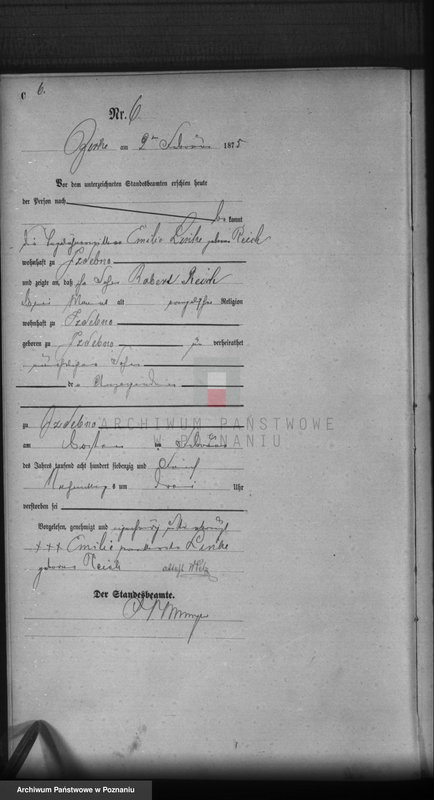 C 6.
Nr. 6
am 2ten Februar 1875
Vor dem unterzeichneten Standesbeamten erschien heute
der Person nach be kannt
die Emilie Linke geborene Reich
wohnhaft zu Izdebno
und zeigte an, daß ihr Sohn Robert Reich
Monat alt evangelischer Religion
wohnhaft zu Izdebno
geboren zu Izdebno un verheirathet
Sohn
der Anzeigenden
zu Izdebno
am ersten Februar
des Jahrs tausend acht hundert siebenzig und fünf
Nachmittag s um drei Uhr
verstorben sei
Vorgelesen, genehmigt und
+++ Emilie Linke
geborene Reich attest.
Der Standesbeamte.
ARCHIWUM PAŃSTWOWE
W POZNANIU
Archiwum Państwowe w Poznaniu